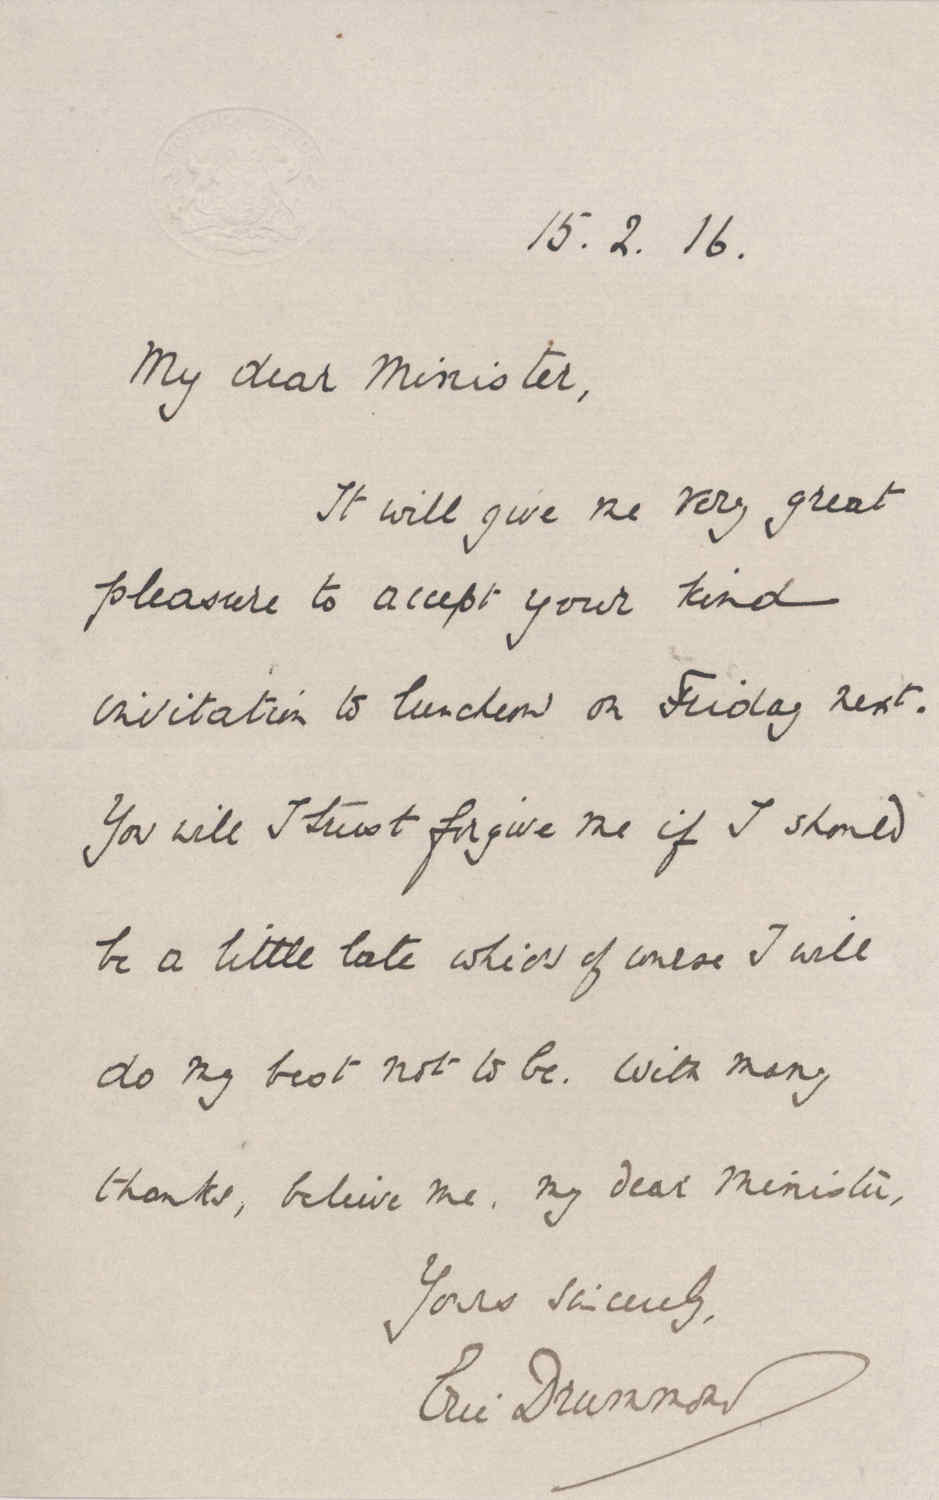 15. 2. 16.
My dear Minister,
It will give me very great
pleasure to accept your kind
invitation to luncheon on Friday next.
You will I trust forgive me if I should
be a little late which of course I will
do my best not to be. With many
thanks, believe me, my dear Minister,
Yours sincerely,
Eric Drummond